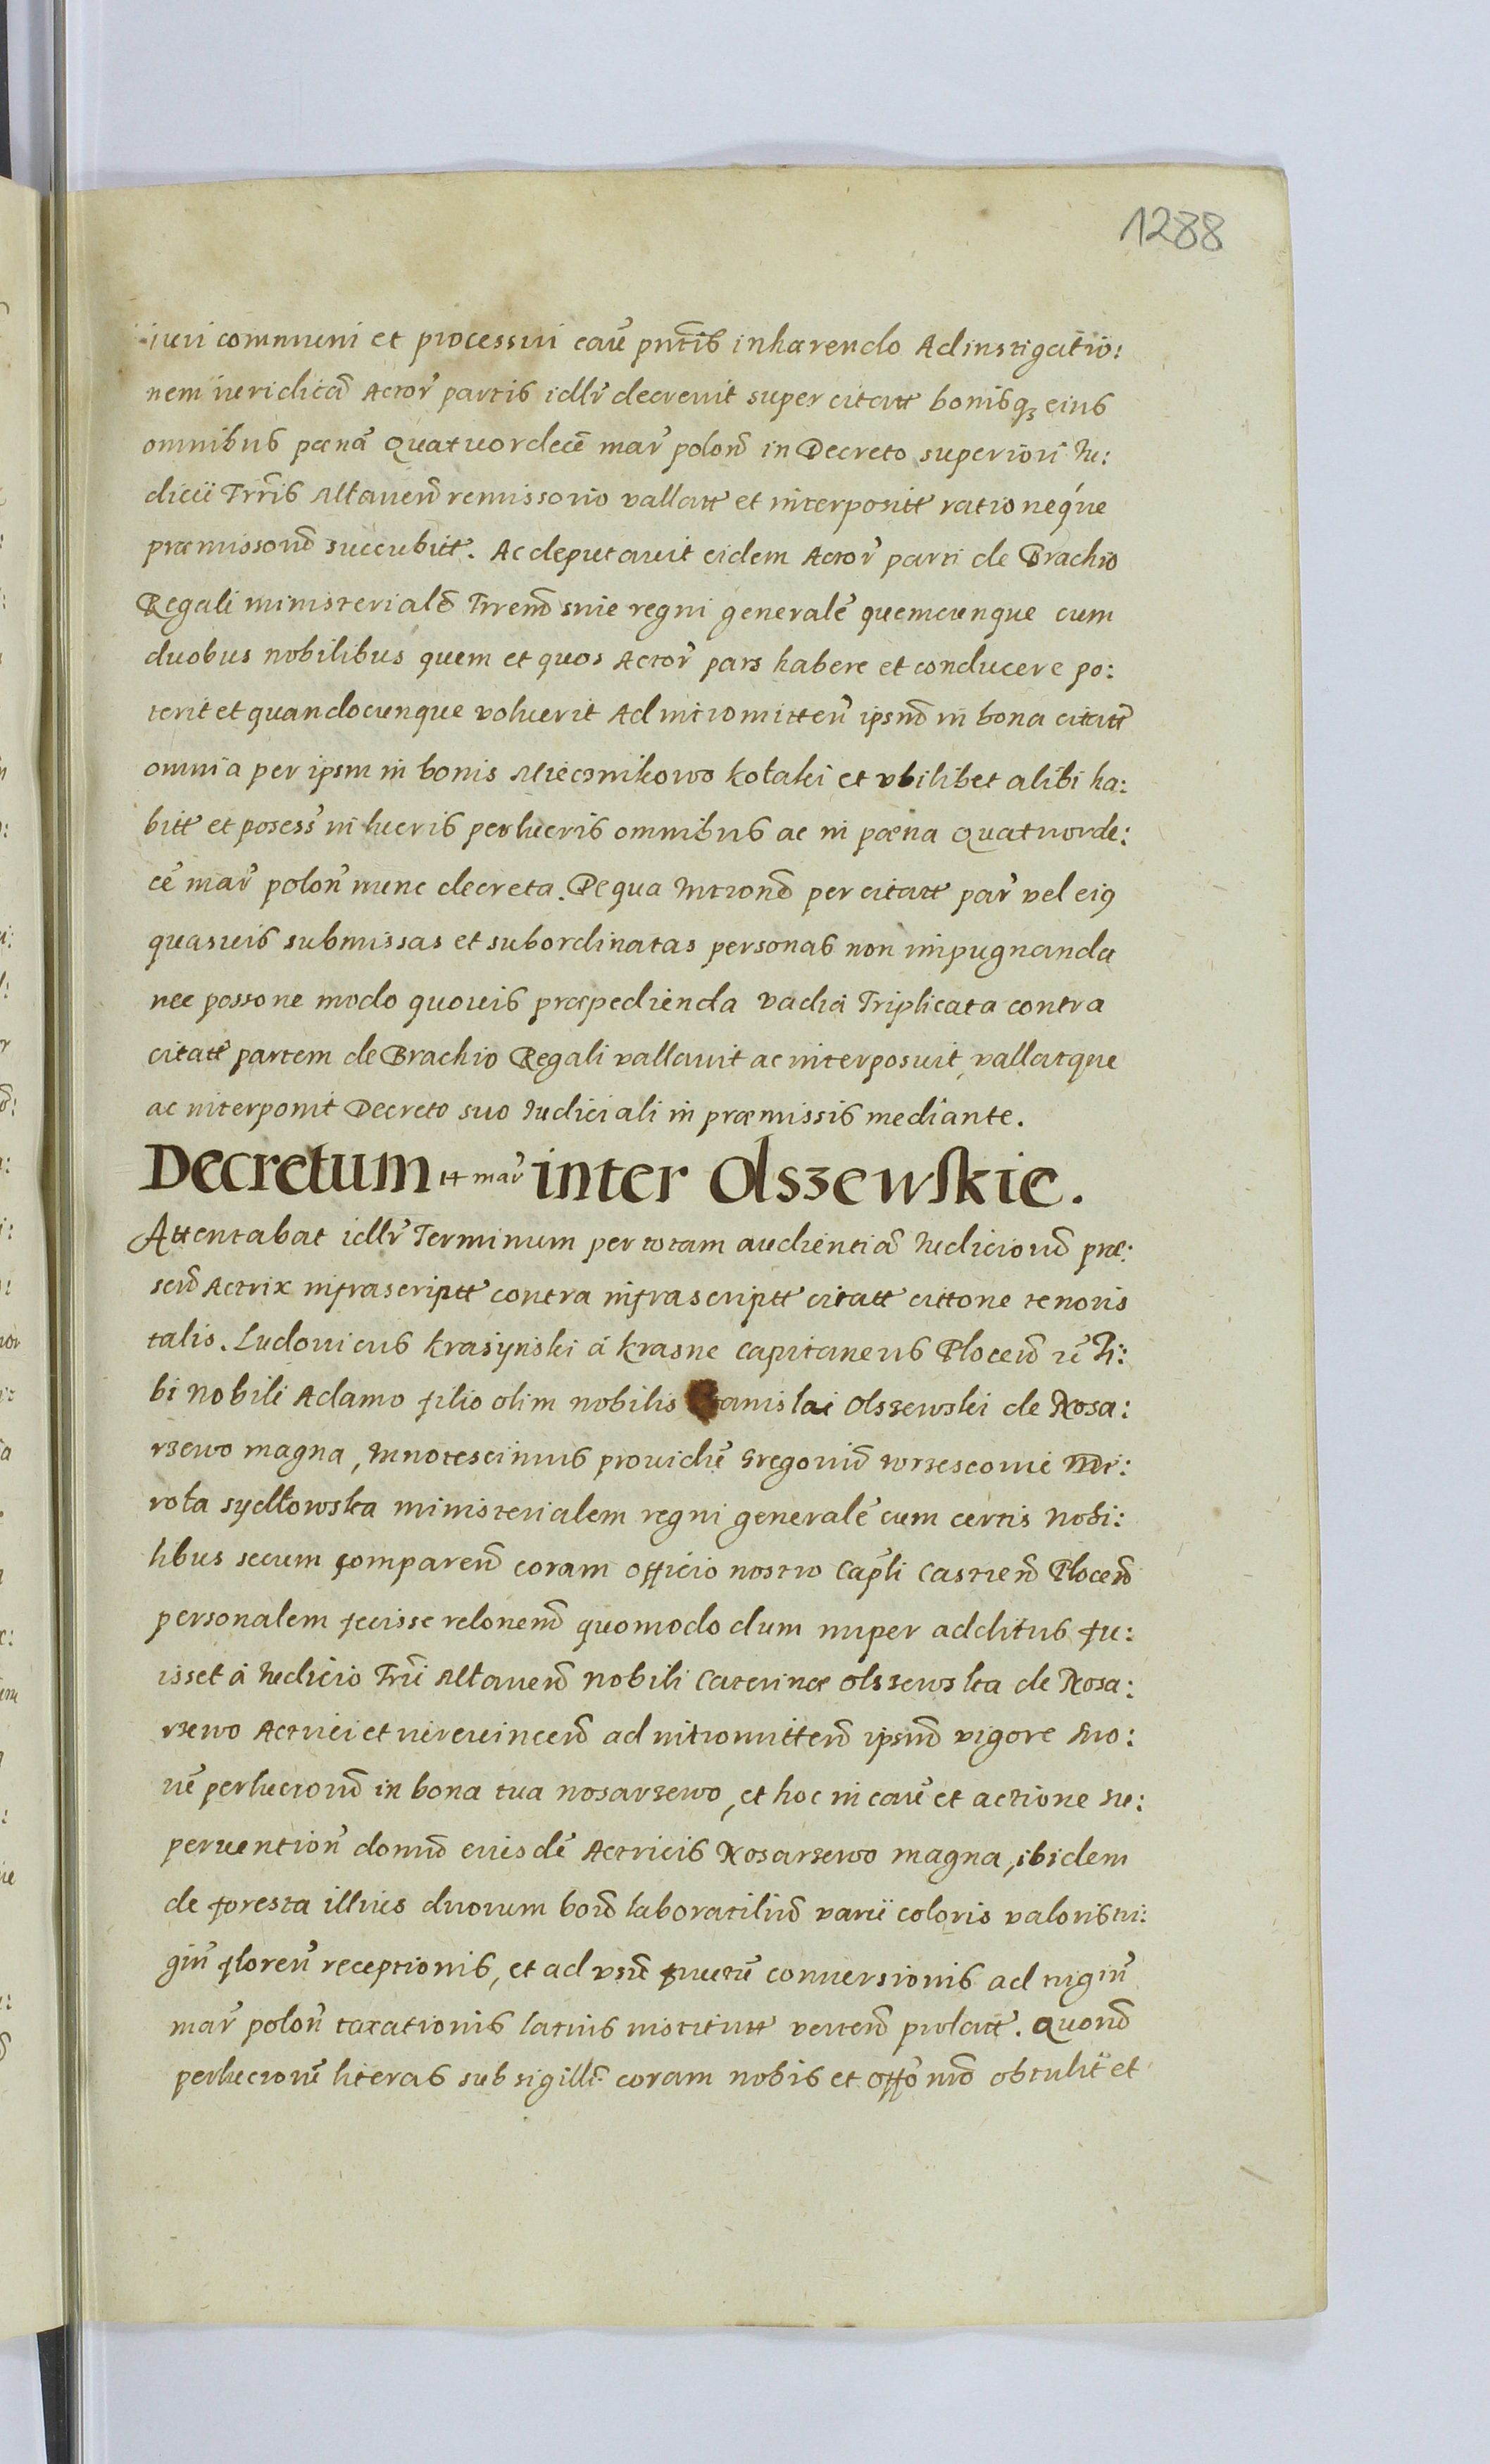 1288
iuri communi et processui cauē pntib inhærendo Ad instigatio:
nem iuridicā Actor̃ partis idlr̃ decrevit super citatt bonisq; eius
omnibus pœnā Quatuordecē mar̃ polon̄ in Decreto superiori Iu:
dicii Trr̃is Mlauen̄ remissorio vallatt et interpositt rationeq́ue
præmissorū succubitt. Ac deputauit eidem Actor̃ parti de Brachio
Regali ministerialē Trren̄ siue regni generalē quemcunque cum
duobus nobilibus quem et quos Actor̃ pars habere et conducere po:
terit et quandocunque voluerit Ad intromitten̄ ipsm̄ in bona citatt
omnia per ipsm in bonis Miecznikowo kołaki et vbilibet alibi ha:
bitt et posess̃ in lucris perlucris omnibus ac in pœna Quatuorde:
cē mar̃ polon̄ nunc decreta. De qua Intron̄e per citatt par̃ vel eiꝯ
quasuis submissas et subordinatas personas non impugnanda
nec possone modo quouis præpedienda vadia Triplicata contra
citatt partem de Brachio Regali vallauit ac interposuit, vallatque
ac interponit Decreto suo Iudiciali in præmissis mediante.
Decretum tt mar̃ inter Olszewskie.
Attentabat idlr̃ Terminum per totam audientiā Iudiciorū præ:
sen̄ Actrix infrascriptt contra infrascriptt citatt cittone tenoris
talis. Ludouicus krasynski á krasne capitaneus Plocen̄ rē Ti:
bi Nobili Adamo filio olim nobilis anislai Olszewski de Nosa:
rzewo magna, Innotescimus prouidū Gregoriū
rota sydłowska ministerialem regni generalē cum certis Nobi:
libus secum comparen̄ coram officio nostro Cap̃li Castren̄ Plocen̄
personalem fecisse relonem̄ quomodo dum nuper additus fu:
isset á Iudicio Trr̃i Mlauen̄ Nobili Caterinæ Olszewska de Nosa:
rzewo Actrici et iureuincen̄ ad intromitten̄ ipsm̄ vigore suo:
rū perlucrorū in bona tua nosarzewo, et hoc in cauē et actione su:
peruention̄ domū eiusdē Actricis Nosarzewo magna, ibidem
de foresta illius duorum boū laboratiliū varii coloris valoris tri:
gin̄ floren̄ receptionis, et ad vsū fructū conuersionis ad trigin̄
mar̃ polon̄ taxationis latius institutt verten̄ prolatt. Quorū
perlucrorū literas sub sigill̃ coram nobis et offo nrō obtulit et